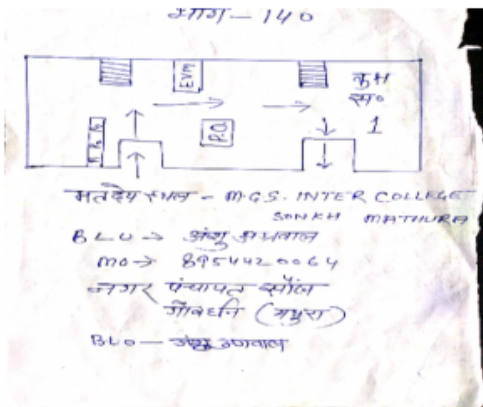 भाग - 140
EVM
कक्ष
स०
P.O
1
मतदेय स्थल - M.G.S. INTER COLLEGE
SONKH MATHURA
BLO → अंशु अग्रवाल
MO → 8954420064
नगर पंचायत सौंख
गोवर्धन (मथुरा)
BLO - अंशु अग्रवाल